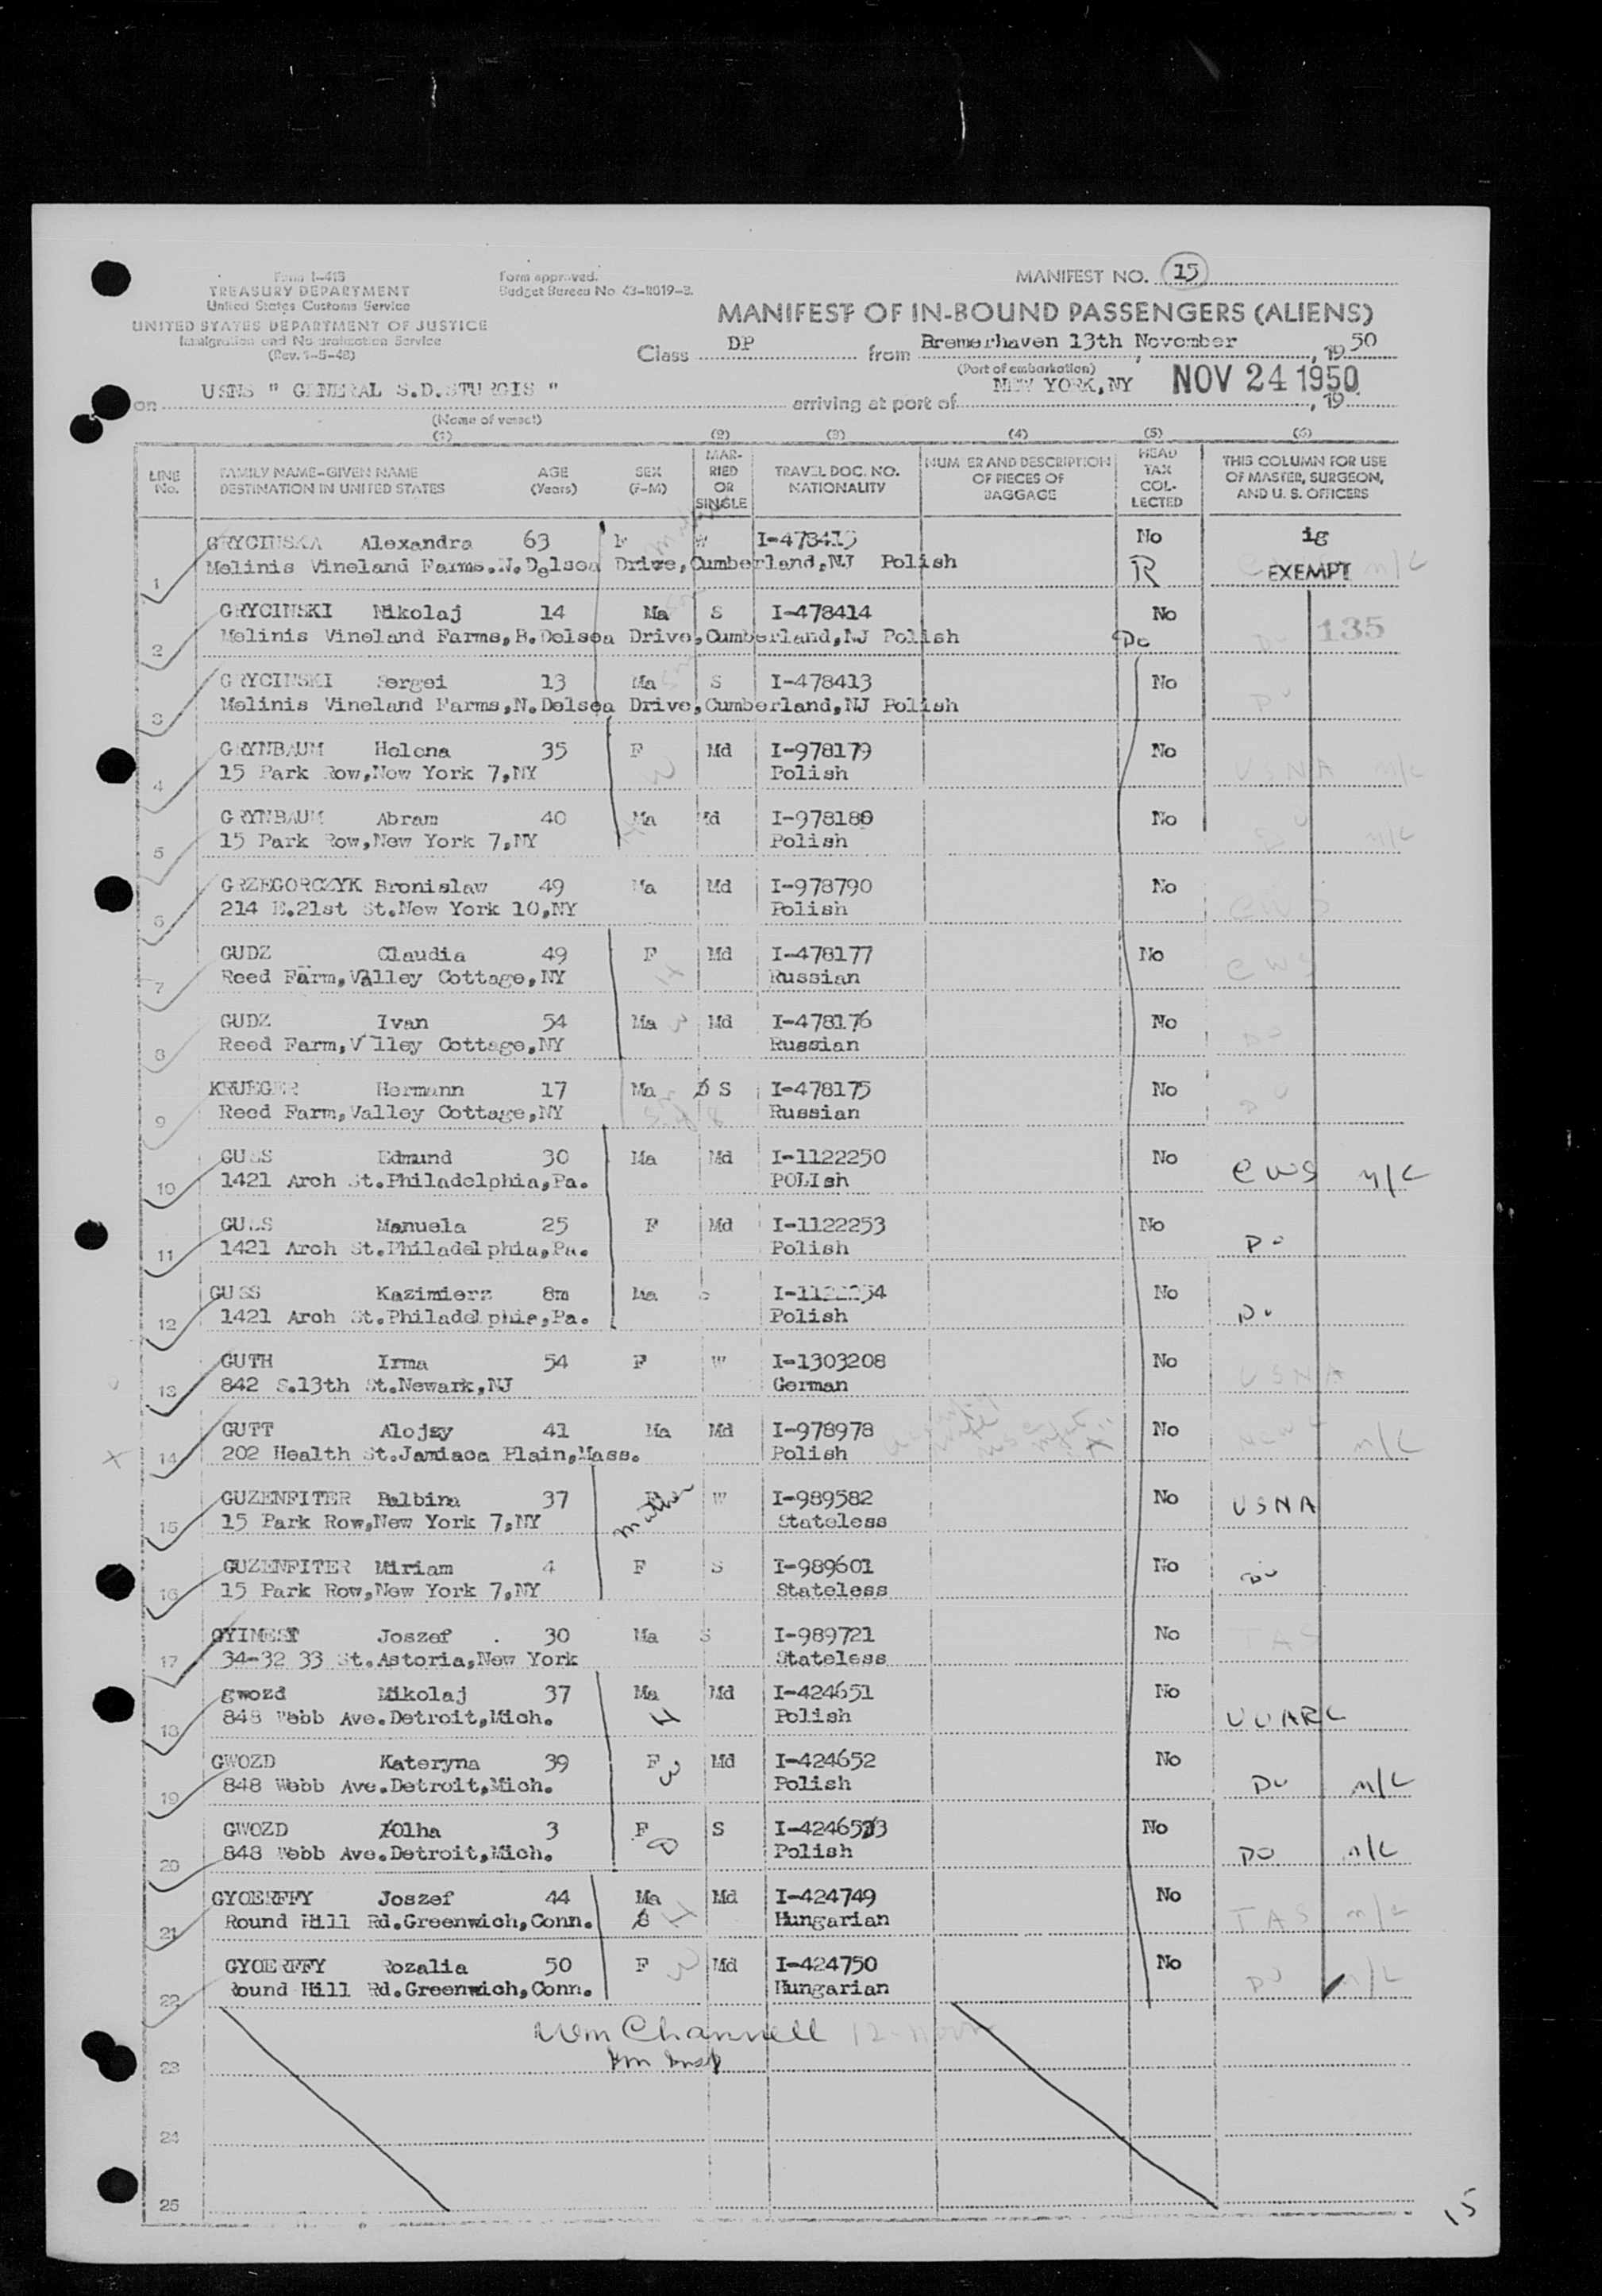 Form I-418
TREASURY DEPARTMENT
United States Customs Service
UNITED STATES DEPARTMENT OF JUSTICE
Immigration and Naturalization Service
(Rev. 1-5-48)
Form approved.
Budget Bureau No. 43-R019-3.
MANIFEST NO. 15
MANIFEST OF IN-BOUND PASSENGERS (ALIENS)
Class DP from Bremerhaven 13th November, 1950
(Port of embarkation)
on USNS " GENERAL S.D.STURGIS " arriving at port of NEW YORK,NY NOV 24 1950, 19
(Name of vessel)
(1) (2) (3) (4) (5) (6)
LINE No. FAMILY NAME-GIVEN NAME DESTINATION IN UNITED STATES AGE (Years) SEX (F-M) MARRIED OR SINGLE TRAVEL DOC. NO. NATIONALITY NUM ER AND DESCRIPTION OF PIECES OF BAGGAGE HEAD TAX COLLECTED THIS COLUMN FOR USE OF MASTER, SURGEON, AND U. S. OFFICERS
GRYCINSKA Alexandra 63 F W No ig
1 Melinis Vineland Farms.N.Delsea Drive,Cumberland,NJ Polish R EXEMPT m/c
GRYCINSKI Nikolaj 14 Ma S I-478414 No 135
2 Melinis Vineland Farms,B.Delsea Drive,Cumberland,NJ Polish Do
GRYCINSKI Sergei 13 Ma S I-478413 No
3 Melinis Vineland Farms,N.Delsea Drive,Cumberland,NJ Polish Do
GRYNBAUM Helena 35 F Md I-978179 No
4 15 Park Row,New York 7,NY W Polish USNA m/c
GRYNBAUM Abram 40 Ma Md I-978180 No
5 15 Park Row,New York 7,NY H Polish Do m/c
GRZEGORCZYK Bronislaw 49 Ma Md I-978790 No
6 214 E.21st St.New York 10,NY Polish CWS
GUDZ Claudia 49 F Md I-478177 No
7 Reed Farm,Valley Cottage,NY Russian CWS
GUDZ Ivan 54 Ma Md I-478176 No
8 Reed Farm,V lley Cottage,NY Russian Do
KRUEGER Hermann 17 Ma S I-478175 No
9 Reed Farm,Valley Cottage,NY Russian Do
GUSS Edmund 30 Ma Md I-1122250 No
10 1421 Arch St.Philadelphia,Pa. POLIsh CWS m/c
GUSS Manuela 25 F Md I-1122253 No
11 1421 Arch St.Philadelphia,Pa. Polish Do
GUSS Kazimierz 8m Ma S I-1122254 No
12 1421 Arch St.Philadelphia,Pa. Polish Do
GUTH Irma 54 F W I-1303208 No
13 842 S.13th St.Newark,NJ German USNA
GUTT Alojzy 41 Ma Md I-978978 No
14 202 Health St.Jamiaca Plain,Mass. Polish m/c
GUZENFITER Balbina 37 F W I-989582 No
15 15 Park Row,New York 7,NY mother Stateless USNA
GUZENFITER Miriam 4 F S I-989601 No
16 15 Park Row,New York 7,NY Stateless Do
GYIMESI Joszef 30 Ma S I-989721 No
17 34-32 33 St.Astoria,New York Stateless TAS
gwozd Mikolaj 37 Ma Md I-424651 No
18 848 Webb Ave.Detroit,Mich. H Polish UUARC
GWOZD Kateryna 39 F Md I-424652 No
19 848 Webb Ave.Detroit,Mich. W Polish Do m/c
GWOZD Olha 3 F S I-424653 No
20 848 Webb Ave.Detroit,Mich. D Polish Do m/c
GYOERFFY Joszef 44 Ma Md I-424749 No
21 Round Hill Rd.Greenwich,Conn. H Hungarian TAS m/c
GYOERFFY Rozalia 50 F Md I-424750 No
22 Round Hill Rd.Greenwich,Conn. W Hungarian Do m/c
Wm Channell
Imm Insp
23
24
25
15